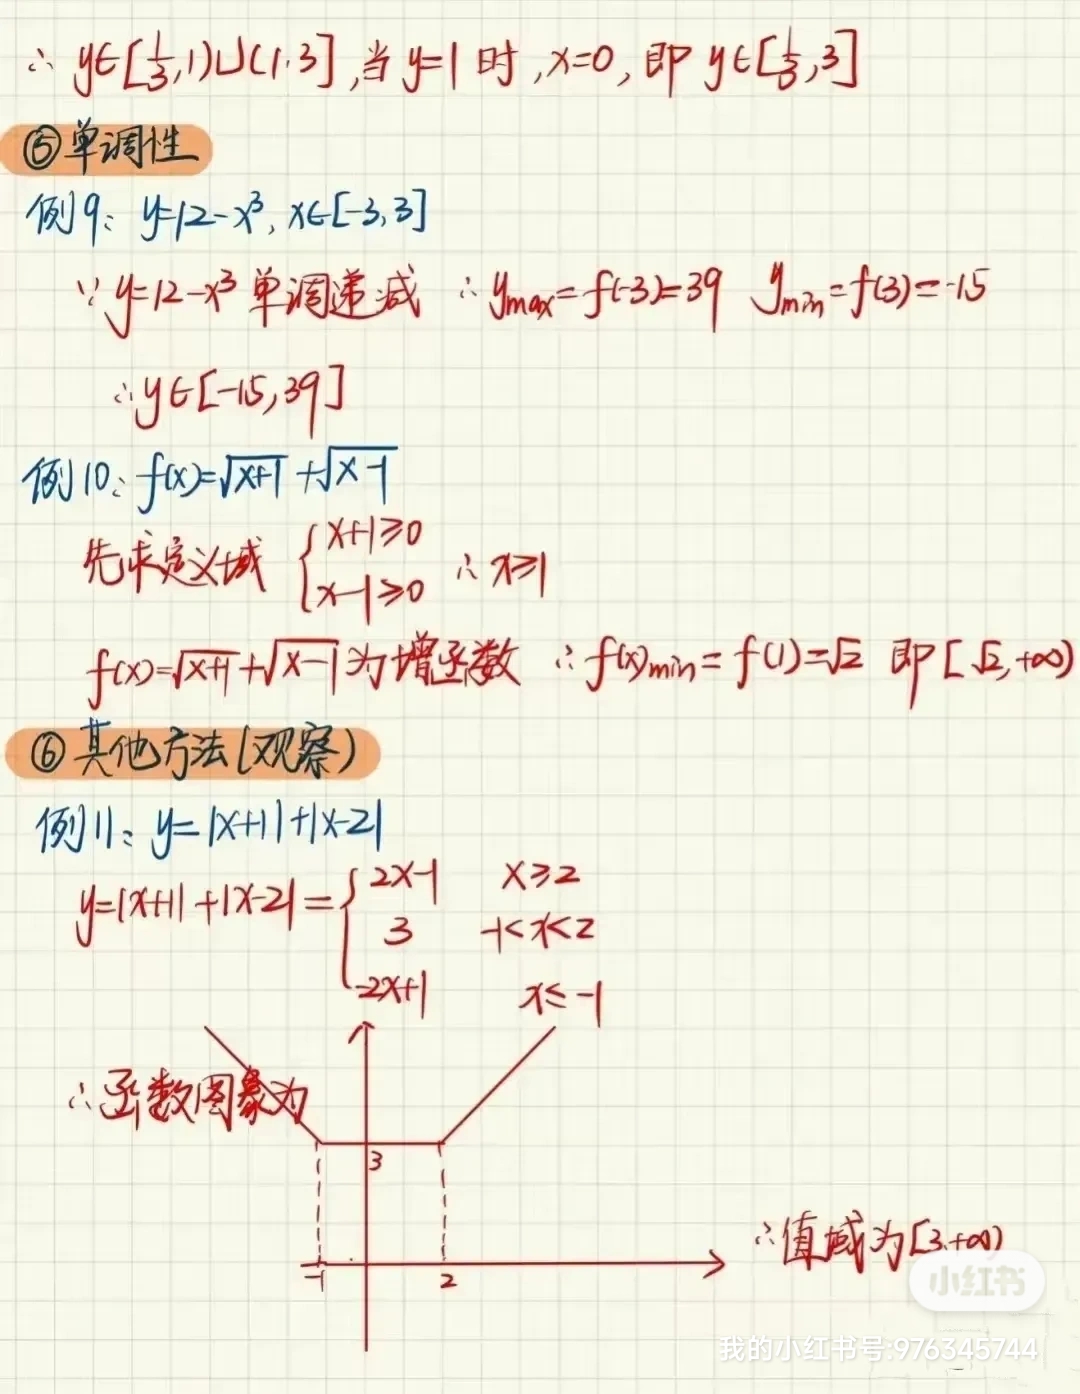 ∴ y∈[1/3,1)∪(1,3],当 y=1 时,x=0,即 y∈[1/3,3]
⑤单调性
例9: y=12-x³, x∈[-3,3]
∵ y=12-x³ 单调递减 ∴ ymax=f(-3)=39 ymin=f(3)=-15
∴ y∈[-15,39]
例10: f(x)=√(x+1)+√(x-1)
先求定义域 { x+1≥0
x-1≥0 ∴ x≥1
f(x)=√(x+1)+√(x-1) 为增函数 ∴ f(x)min=f(1)=√2 即[√2,+∞)
⑥其他方法(观察)
例11: y=|x+1|+|x-2|
y=|x+1|+|x-2|= { 2x-1 x≥2
3 -1<x<2
-2x+1 x≤-1
∴函数图象为
3
-1 2
∴值域为[3,+∞)
小红书
我的小红书号:976345744